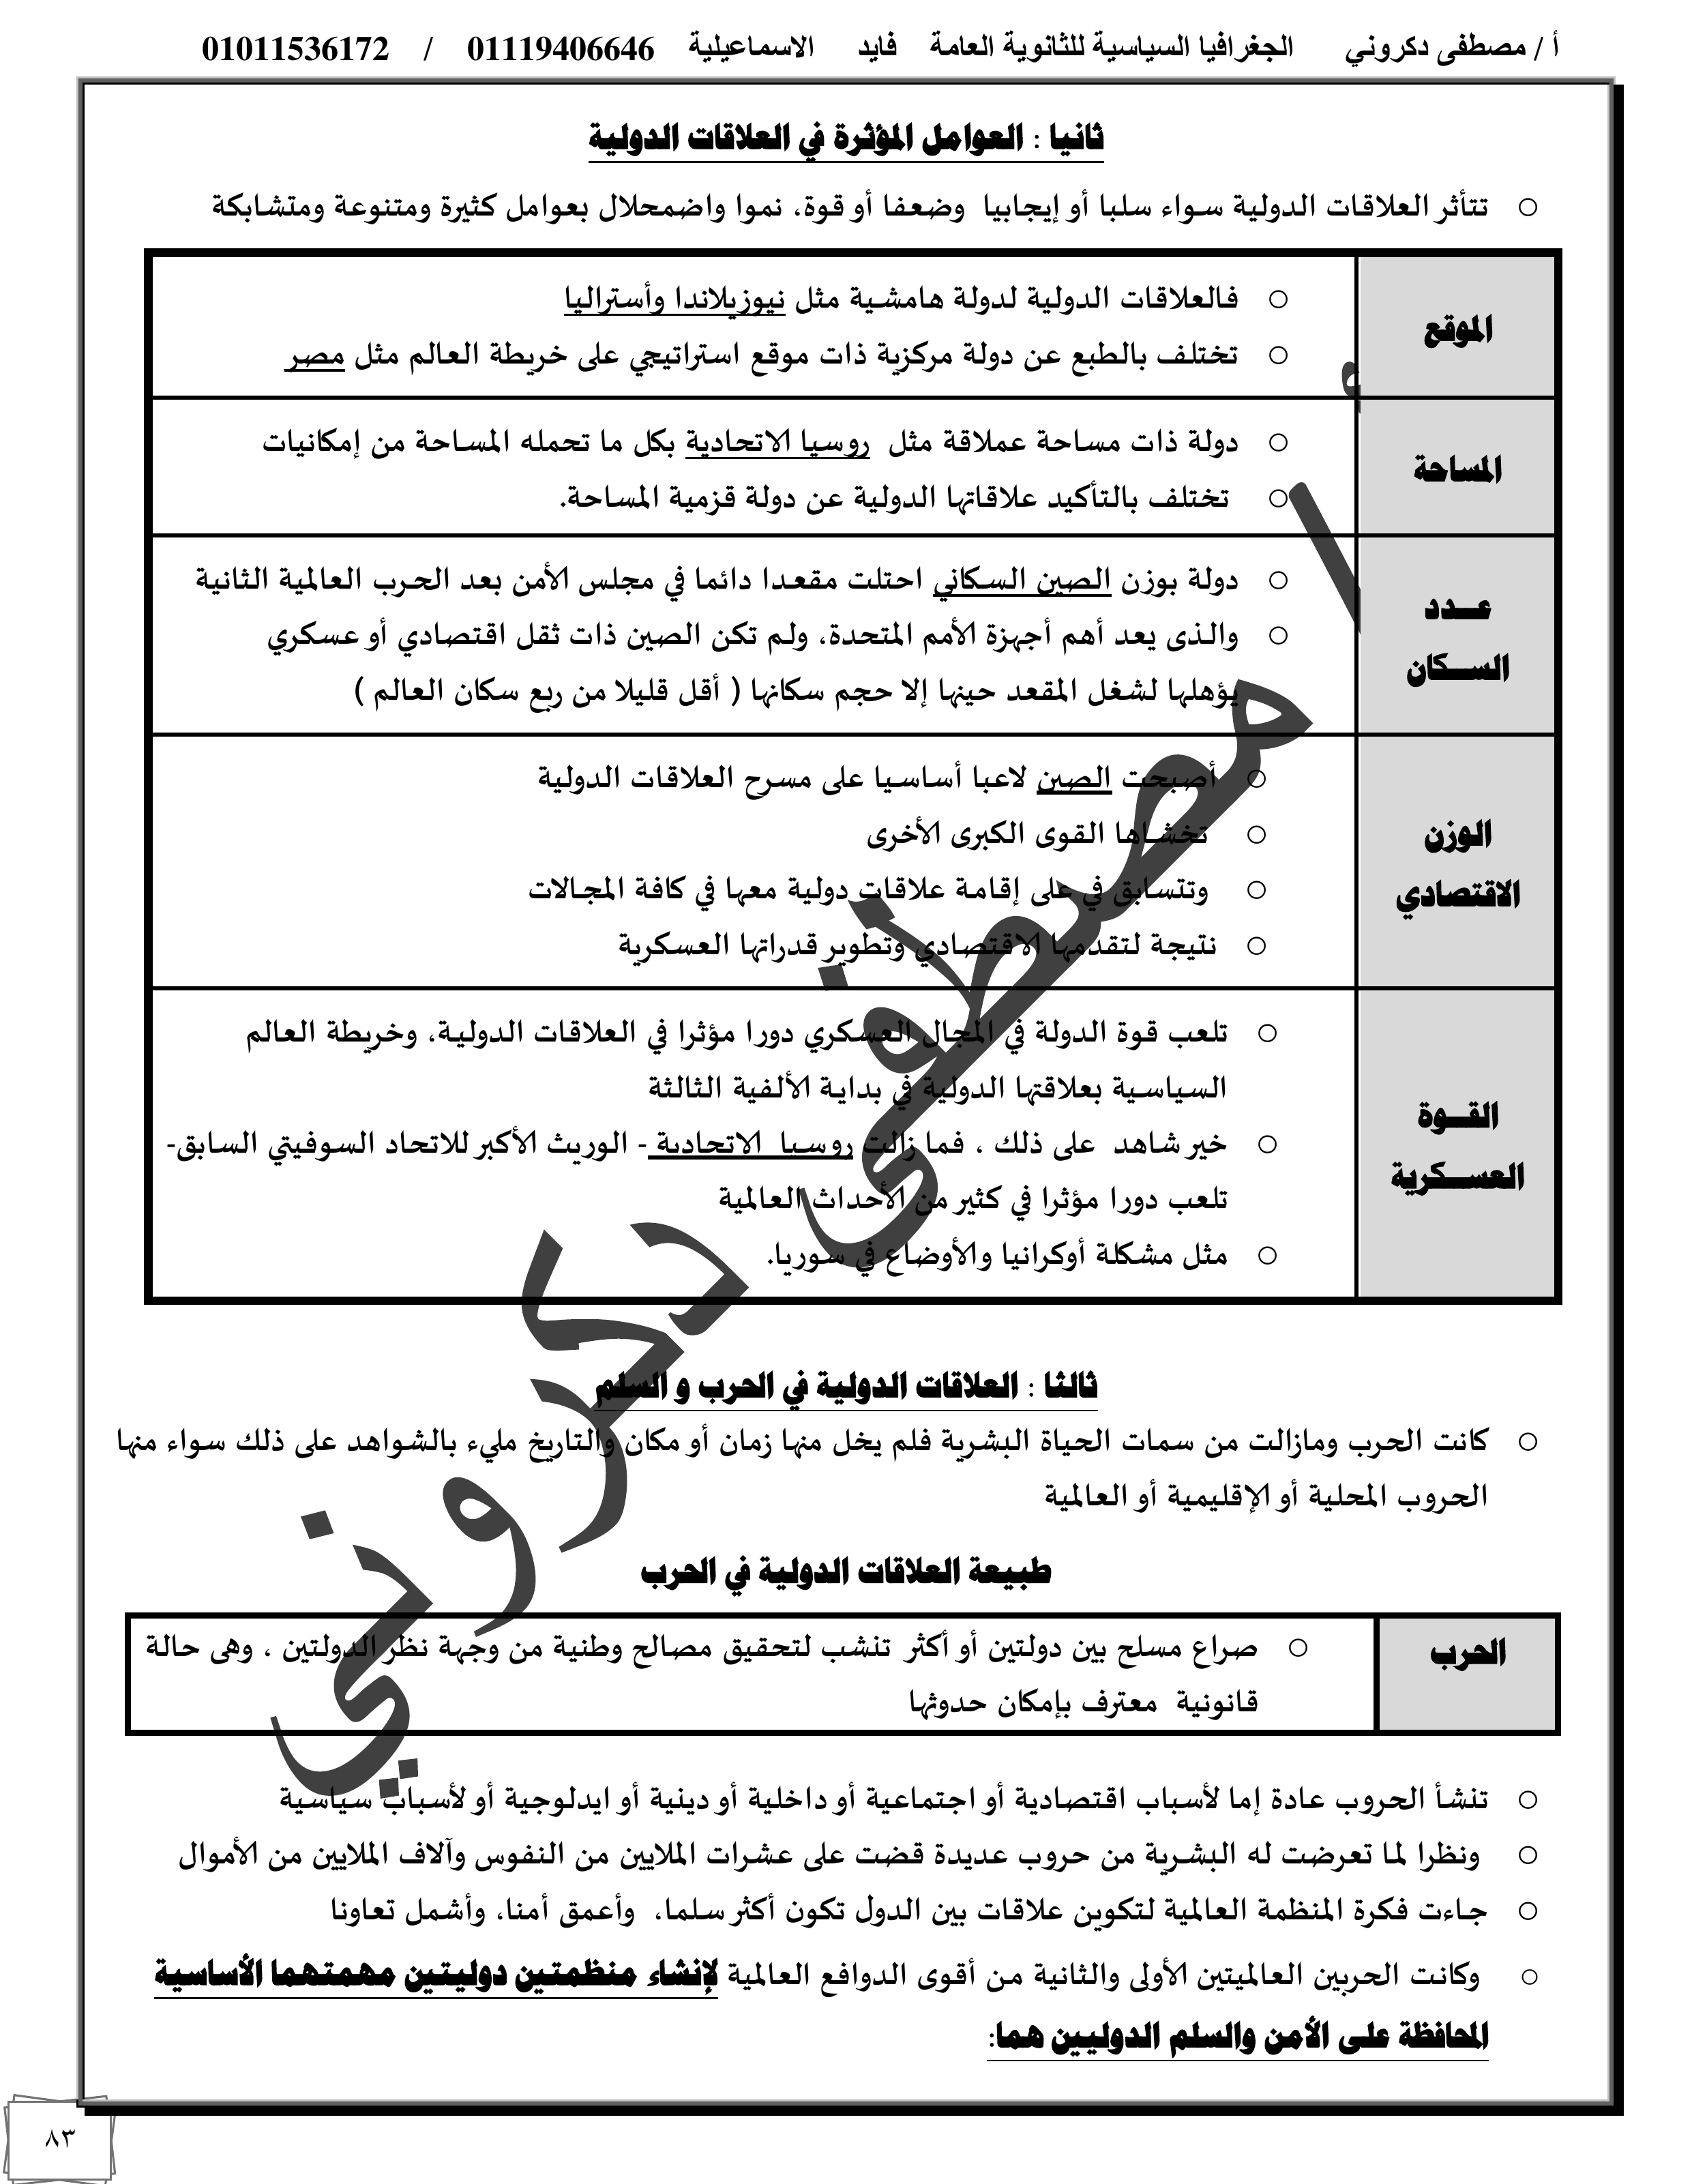 أ / مصطفى دكروني الجغرافيا السياسية للثانوية العامة فايد الاسماعيلية 01119406646 / 01011536172
ثانيا : العوامل المؤثرة في العلاقات الدولية
○ تتأثر العلاقات الدولية سواء سلبا أو إيجابيا وضعفا أو قوة، نموا واضمحلال بعوامل كثيرة ومتنوعة ومتشابكة
الموقع
○ فالعلاقات الدولية لدولة هامشية مثل نيوزيلاندا وأستراليا
○ تختلف بالطبع عن دولة مركزية ذات موقع استراتيجي على خريطة العالم مثل مصر
المساحة
○ دولة ذات مساحة عملاقة مثل روسيا الاتحادية بكل ما تحمله المساحة من إمكانيات
○ تختلف بالتأكيد علاقاتها الدولية عن دولة قزمية المساحة.
عـــدد
الســـكان
○ دولة بوزن الصين السكاني احتلت مقعدا دائما في مجلس الأمن بعد الحرب العالمية الثانية
○ والذى يعد أهم أجهزة الأمم المتحدة، ولم تكن الصين ذات ثقل اقتصادي أو عسكري
يؤهلها لشغل المقعد حينها إلا حجم سكانها ( أقل قليلا من ربع سكان العالم )
الوزن
الاقتصادي
○ أصبحت الصين لاعبا أساسيا على مسرح العلاقات الدولية
○ تخشاها القوى الكبرى الأخرى
○ وتتسابق في على إقامة علاقات دولية معها في كافة المجالات
○ نتيجة لتقدمها الاقتصادي وتطوير قدراتها العسكرية
القـــوة
العســـكرية
○ تلعب قوة الدولة في المجال العسكري دورا مؤثرا في العلاقات الدولية، وخريطة العالم
السياسية بعلاقتها الدولية في بداية الألفية الثالثة
○ خير شاهد على ذلك ، فما زالت روسيا الاتحادية - الوريث الأكبر للاتحاد السوفيتي السابق-
تلعب دورا مؤثرا في كثير من الأحداث العالمية
○ مثل مشكلة أوكرانيا والأوضاع في سوريا.
أ / مصطفى دكروني
ثالثا : العلاقات الدولية في الحرب و السلم
○ كانت الحرب ومازالت من سمات الحياة البشرية فلم يخل منها زمان أو مكان والتاريخ مليء بالشواهد على ذلك سواء منها
الحروب المحلية أو الإقليمية أو العالمية
طبيعة العلاقات الدولية في الحرب
الحرب
○ صراع مسلح بين دولتين أو أكثر تنشب لتحقيق مصالح وطنية من وجهة نظر الدولتين ، وهى حالة
قانونية معترف بإمكان حدوثها
○ تنشأ الحروب عادة إما لأسباب اقتصادية أو اجتماعية أو داخلية أو دينية أو ايدلوجية أو لأسباب سياسية
○ ونظرا لما تعرضت له البشرية من حروب عديدة قضت على عشرات الملايين من النفوس وآلاف الملايين من الأموال
○ جاءت فكرة المنظمة العالمية لتكوين علاقات بين الدول تكون أكثر سلما، وأعمق أمنا، وأشمل تعاونا
○ وكانت الحربين العالميتين الأولى والثانية من أقوى الدوافع العالمية لإنشاء منظمتين دوليتين مهمتهما الأساسية
المحافظة على الأمن والسلم الدوليين هما:
٨٣